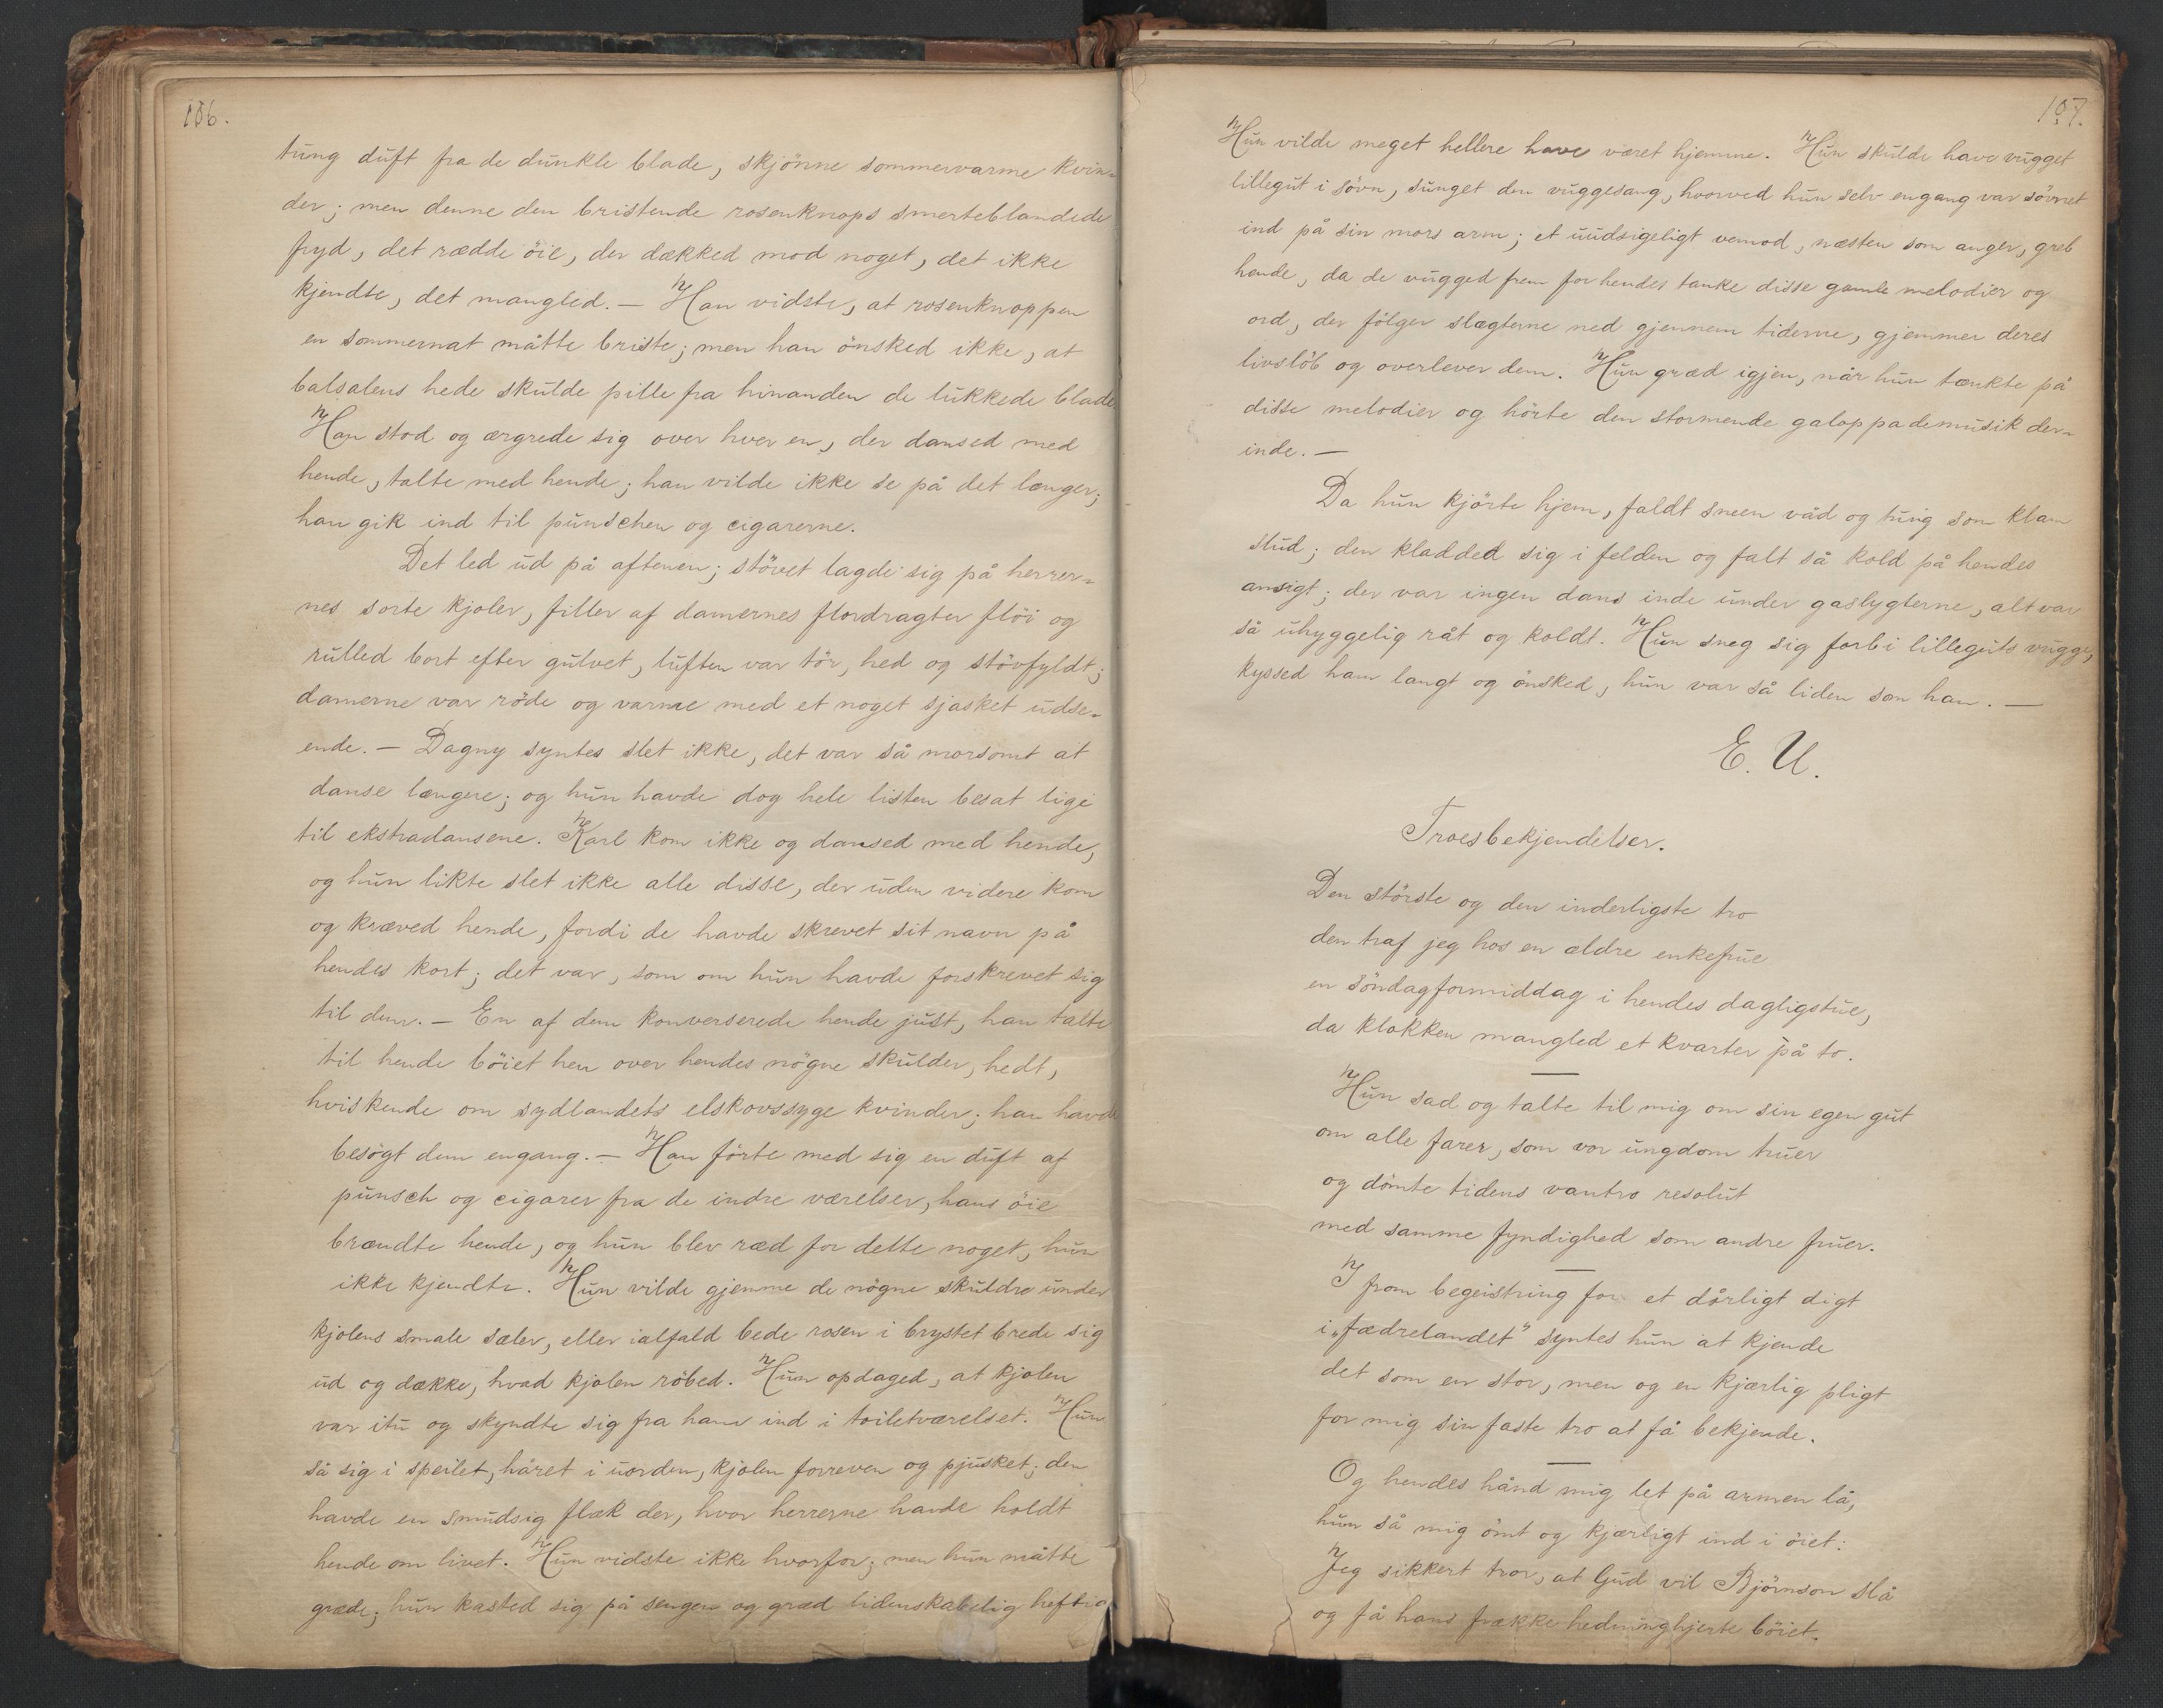 106.
tung duft fra de dunkle blade, skjönne sommervarme kvin-
der; men denne den bristende rosenknops smerteblandede
fryd, det rædde öie, der dækked mod noget, det ikke
kjendte, det mangled. — Han vidste, at rosenknoppen
en sommernat måtte briste; men han önsked ikke, at
balsalens hede skulde pille fra hinanden de lukkede blade.
Han stod og ærgrede sig over hver en, der dansed med
hende, talte med hende; han vilde ikke se på det længer;
han gik ind til punschen og cigarerne.
Det led ud på aftenen; stövet lagde sig på herrer-
nes sorte kjoler, filler af damernes flordragter flöi og
rulled bort efter gulvet, luften var tör, hed og stövfyldt;
damerne var röde og varme med et noget sjasket udse-
ende. — Dagny syntes slet ikke, det var så morsomt at
danse længere; og hun havde dog hele listen besat lige
til ekstradansene. Karl kom ikke og dansed med hende,
og hun likte slet ikke alle disse, der uden videre kom
og kræved hende, fordi de havde skrevet sit navn på
hendes kort; det var, som om hun havde forskrevet sig
til dem. — En af dem konverserede hende just, han talte
til hende böiet hen over hendes nögne skulder, hedt,
hviskende om sydlandets elskovssyge kvinder; han havde
besögt dem engang. — Han förte med sig en duft af
punsch og cigarer fra de indre værelser, hans öie
brændte hende, og hun blev ræd for dette noget, hun
ikke kjendte. Hun vilde gjemme de nögne skuldre under
kjolens smale sæler, eller ialfald bede rosen i brystet brede sig
ud og dække, hvad kjolen röbed. Hun opdaged, at kjolen
var itu og skyndte sig fra ham ind i toiletværelset. Hun
så sig i speilet, håret i uorden, kjolen forreven og pjusket; den
havde en smudsig flæk der, hvor herrerne havde holdt
hende om livet. Hun vidste ikke hvorfor; men hun måtte
græde; hun kasted sig på sengen og græd lidenskabelig heftig
107.
Hun vilde meget hellere have været hjemme. Hun skulde have vugget
lillegut i sövn, sunget den vuggesang, hvorved hun selv engang var sövnet
ind på sin mors arm; et uudsigeligt vemod, næsten som anger, greb
hende, da de vugged frem for hendes tanke disse gamle melodier og
ord, der fölger slægterne ned gjennem tiderne, gjemmer deres
livslöb og overlever dem. Hun græd igjen, når hun tænkte på
disse melodier og hörte den stormende galoppademusik der-
inde. —
Da hun kjörte hjem, faldt sneen våd og tung som klam
slud; den kladded sig i felden og falt så kold på hendes
ansigt; der var ingen dans inde under gaslygterne, alt var
så uhyggelig råt og koldt. Hun sneg sig forbi lilleguts vugge,
kyssed ham langt og önsked, hun var så liden som han. —
E. U.
Troesbekjendelser.
Den störste og den inderligste tro
den traf jeg hos en ældre enkefrue
en söndagformiddag i hendes dagligstue,
da klokken mangled et kvarter på to.
Hun sad og talte til mig om sin egen gut
om alle farer, som vor ungdom truer
og dömte tidens vantro resolut
med samme fyndighed som andre fruer.
I from begeistring for et dårligt digt
i „fædrelandet" syntes hun at kjende
det som en stor, men og en kjærlig pligt
for mig sin faste tro at få bekjende.
Og hendes hånd mig let på armen lå,
hun så mig ömt og kjærligt ind i öiet:
Jeg sikkert tror, at Gud vil Björnson slå
og få hans frække hedninghjerte böiet.